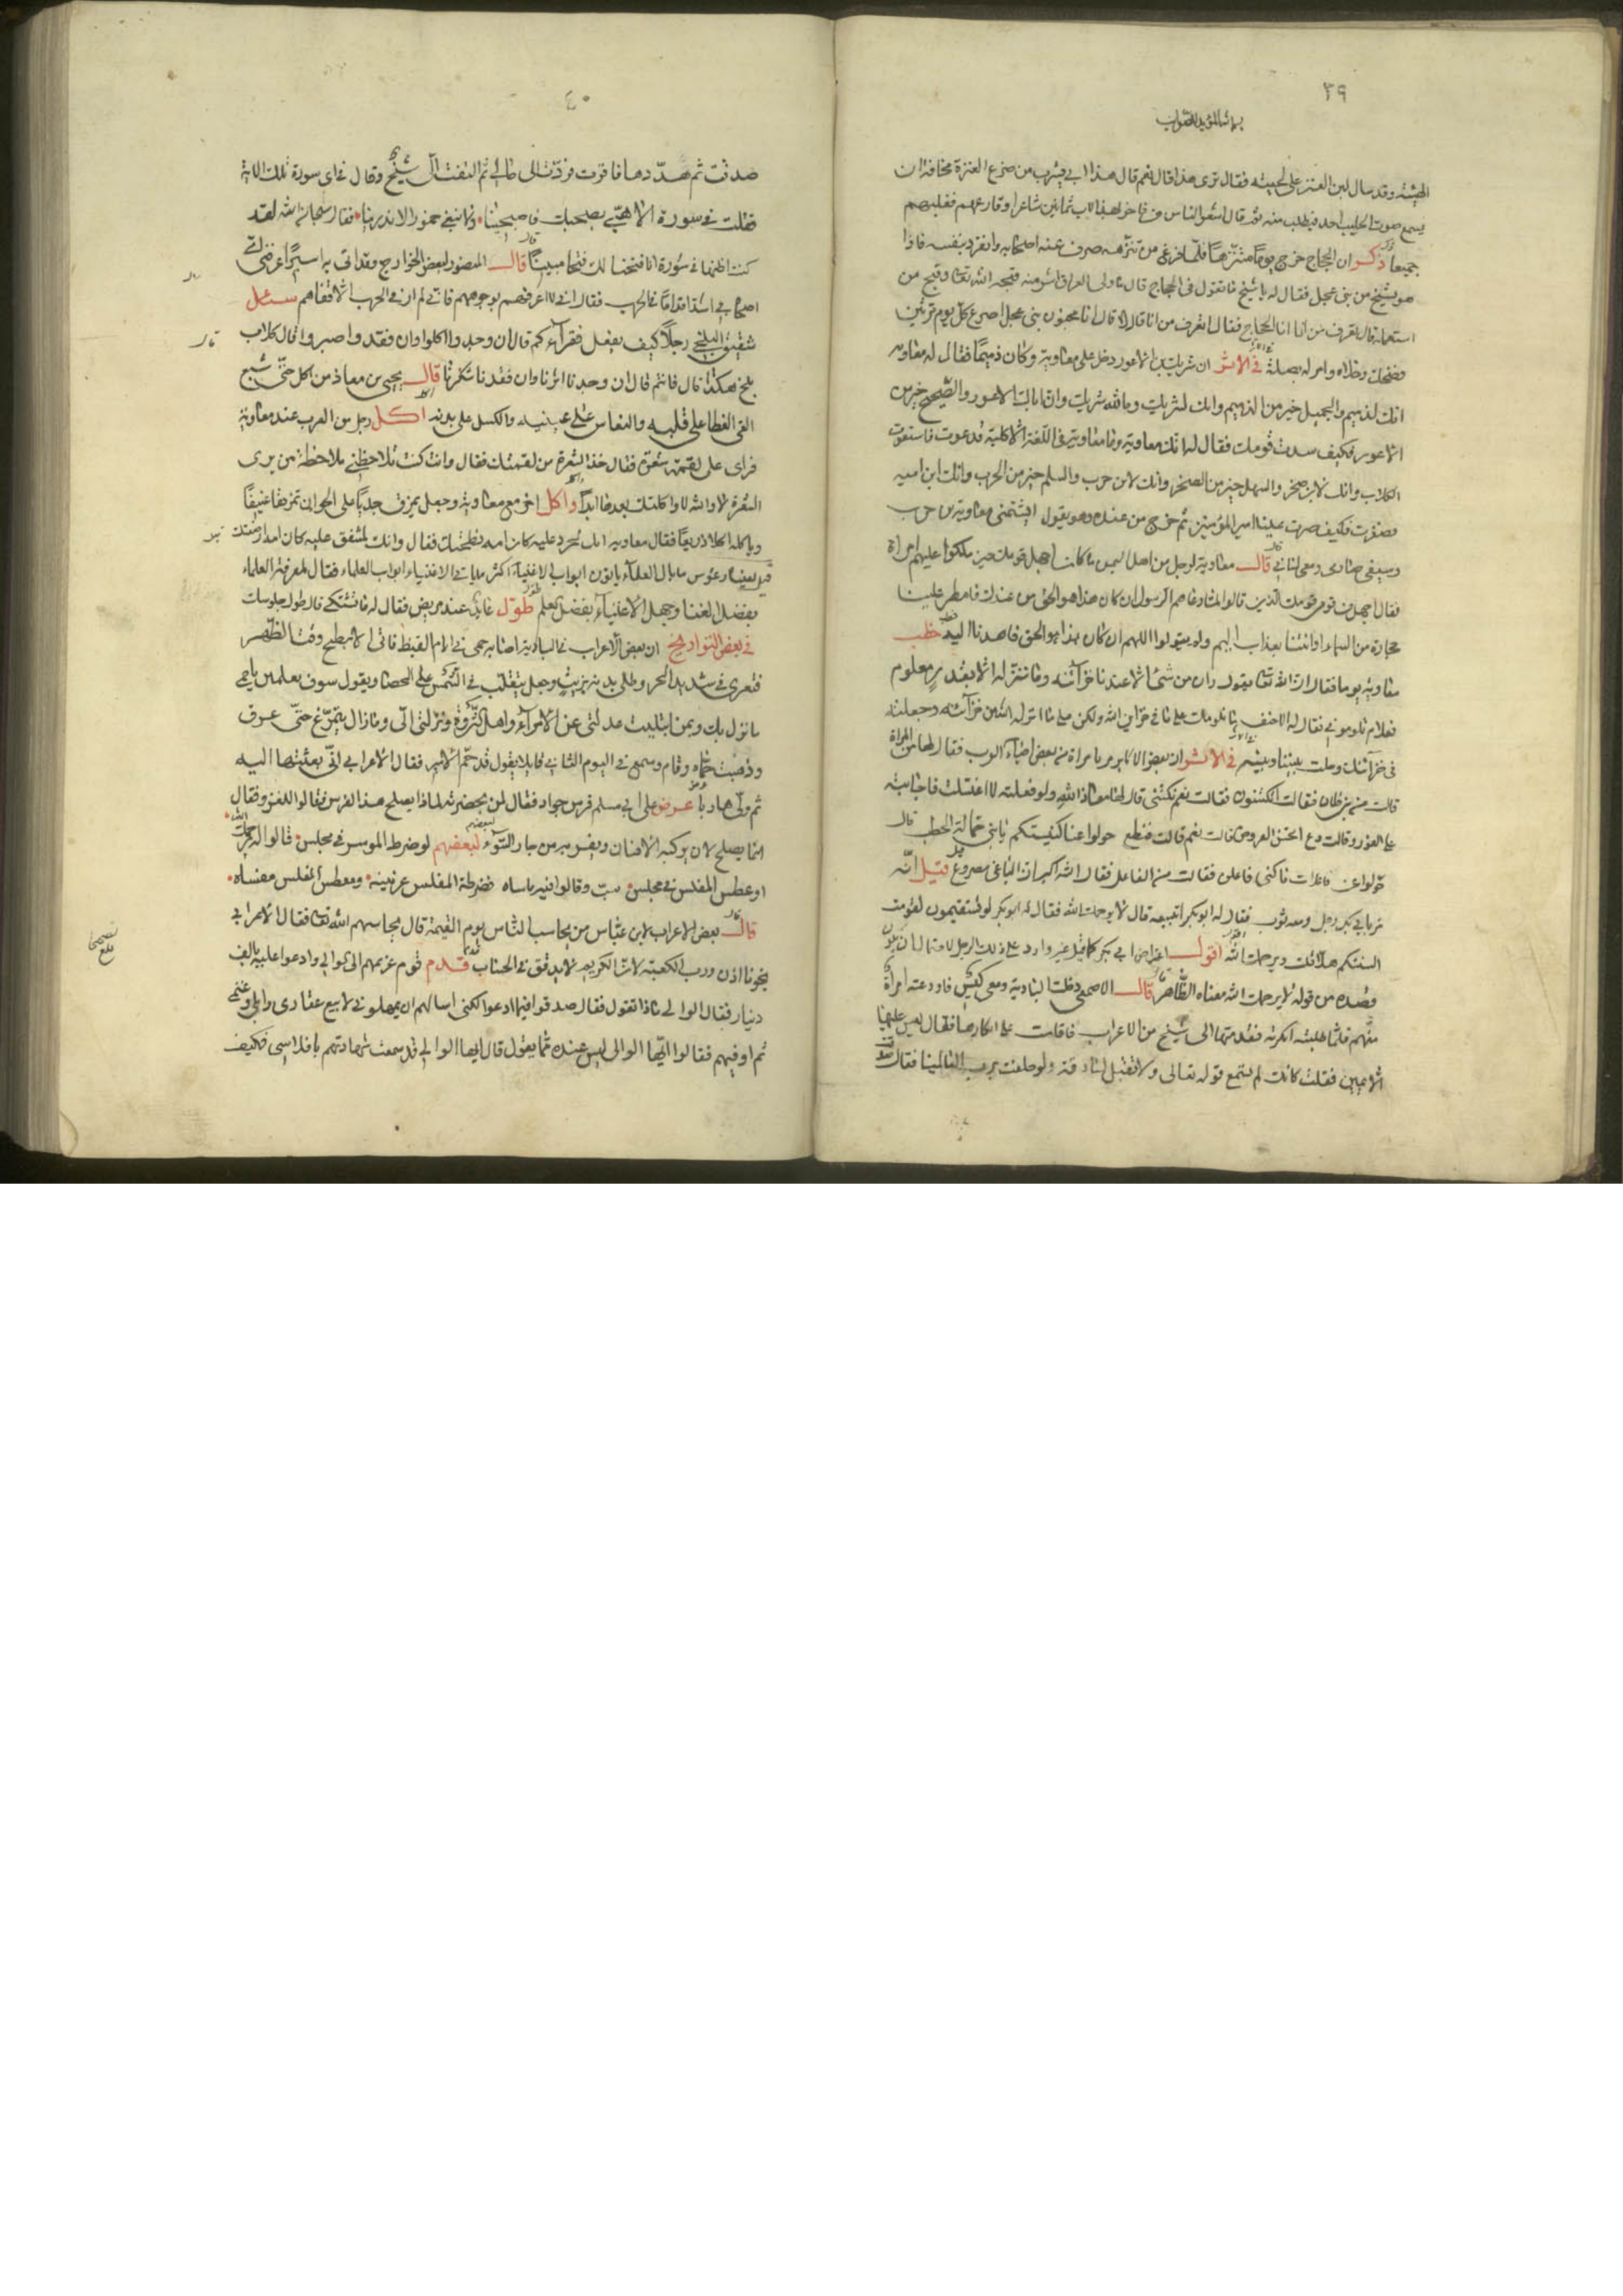 ٣٩
الهيئة وقد سال لبن العنز على لحيته فقال ترى هذا قال نعم قال هذا ابي يشرب من ضرع العنزة مخافة ان
يسمع صوت الحليب احد فيطلب منه ثم قال اشعر الناس من فاخر بهذا الاب ثمانين شاعرا وقارعهم فغلبهم
جميعا ذكر ان الحجاج خرج يوما متنزها فلما فرغ من تنزهه صرف عنه اصحابه وانفرد بنفسه فاذا
هو بشيخ من بني عجل فقال له يا شيخ ما تقول في الحجاج قال ما ولى العراق اشر منه قبحه الله تعالى وقبح من
استعمله قال تعرف من انا انا الحجاج فقال اتعرف من انا قال لا قال انا مجنون بني عجل اصرع كل يوم مرتين
فضحك وخلاه وامر له بصلة في الاثر ان شريك بن الاعور دخل على معاوية وكان ذميما فقال له معاوية
انك لذميم والجميل خير من الذميم وانك لشريك وما لله شريك وان اباك الاعور والصحيح خير من
الاعور فكيف سدت قومك فقال له انك معاوية وما معاوية في اللغة الا كلبة قد عوت فاستعوت
الكلاب وانك لابن صخر والسهل خير من الصخر وانك لابن حرب والسلم خير من الحرب وانك ابن امية
فكيف صرت علينا امير المؤمنين ثم خرج من عنده وهو يقول ايشتمني معاوية بن حرب
وسيفي صارم ومعي لساني قال معاوية لرجل من اهل اليمن ما كان اجهل قومك حين ملكوا عليهم امراة
فقال اجهل من قومي قومك الذين قالوا لما دعاهم الرسول ان كان هذا هو الحق من عندك فامطر علينا
حجارة من السماء او ائتنا بعذاب اليم ولم يقولوا اللهم ان كان هذا هو الحق فاهدنا اليه خطب
معاوية يوما فقال ان الله تعالى يقول وان من شيء الا عندنا خزائنه وما ننزله الا بقدر معلوم
فعلام تلوموني فقال له الاحنف ما نلومك على ما في خزاين الله ولكن على ما انزله الله من خزائنه وجعلته
في خزائنك وحلت بيننا وبينه في الاثر ان بعض الاكابر مر بامراة من بعض احياء العرب فقال لها من المراة
قالت من بني فلان فقال لها اتكتنون فقالت نعم نكتني قال لها معاذ الله ولو فعلته لاغتسلت فاجابته
على الفور وقالت دع اتحسن العروض قالت نعم قالت قطع حولوا عنا كنيستكم يا بني حمالة الحطب قال
حولوا عن فاعلات ناكني فاعلن فقالت من الفاعل فقال الله اكبر ان الباغي مصروع قيل انه
مر بابي بكر رجل ومعه ثوب فقال له ابو بكر اتبيعه قال لا يرحمك الله فقال له ابو بكر لو تستقيمون لقومت
السنتكم هلا قلت لا ويرحمك الله اقول اعتراض ابي بكر كما قيل غير وارد على ذلك الرجل لاحتمال ان يكون
قصده من قوله لا يرحمك الله معناه الظاهر قال الاصمعي دخلت البادية ومعي كيس فاودعته امراة
منهم فلما طلبته انكرته فقدمتها الى شيخ من الاعراب فاقامت على انكارها فقال ليس عليها
الا يمين فقلت كانك لم تسمع قوله تعالى ولا تقبل لسارقة ولو حلفت برب العالمينا فقال
٤٠
صدقت ثم تهددها فاقرت وردت الي مالي ثم التفت الي الشيخ وقال في اي سورة تلك الاية
فقلت في سورة الا هبي بصحنك فاصبحينا ولا تبقي خمور الاندرينا فقال سبحان الله لقد
كنت اظنها في سورة انا فتحنا لك فتحا مبينا قال المنصور لبعض الخوارج وقد اتي به اسيرا عرفني اي
اصحابي اشد اقداما في الحرب فقال اني لا اعرفهم بوجوههم فاني لم ار في الحرب الا قفاهم سئل
شقيق البلخي رجلا كيف يفعل فقراءكم قال ان وجدوا اكلوا وان فقدوا صبروا قال كلاب
بلخ هكذا قال فانتم قال ان وجدنا اثرنا وان فقدنا شكرنا قال يحيى بن معاذ من اكل حتى شبع
القي الغطا على قلبه والنعاس على عينيه والكسل على بدنه اكل رجل من العرب عند معاوية
فراى على لقمته شعرة فقال خذ الشعرة من لقمتك فقال وانت كنت تلاحظني ملاحظة من يرى
الشعرة لا والله لا واكلتك بعدها ابدا واكل اخر مع معاوية وجعل يمزق جديا على الخوان تمزيقا عنيفا
وياكله اكلا ذريعا فقال معاوية انك لحرد عليه كان امه نطحتك فقال وانك لمشفق عليه كان امه ارضعتك
قيل لبعض ما بال العلماء ياتون ابواب الاغنياء اكثر ما ياتي الاغنياء ابواب العلماء فقال لمعرفة العلماء
بفضل الغنا وجهل الاغنياء بفضل العلم طول عايد عند مريض فقال له ما تشتكي قال طول جلوسك
في بعض التواريخ ان بعض الاعراب في البادية اصابه حمى في ايام القيظ فاتى الابطح وقت الظهر
فتعرى في شديد الحر وطلى بدنه بزيت وجعل يتقلب في الشمس على الحصا ويقول سوف تعلمين يا حمى
ما نزل بك وبمن ابتليت عدلتي عن الامراء واهل الثروة ونزلتي الي وما زال يتمرغ حتى عرق
وذهبت حماه وقام وسمع في اليوم الثاني قايلا يقول قد حم الامير فقال الاعرابي انا بعثتها اليه
ثم ولى هاربا عرض على ابي مسلم فرس جواد فقال لمن بحضرته لماذا يصلح هذا الفرس فقالوا للغزو فقال
انما يصلح لان يركبه الانسان ويفر به من جار السوء لبعضهم لو ضرط الموسر في مجلس قالوا له يرحمك الله
او عطس المفلس في مجلس سب وقالوا فيه ما ساه فضرطة المفلس عرنينه ومعطس المفلس مفساه
قال بعض الاعراب لابن عباس من يحاسب الناس يوم القيمة قال يحاسبهم الله تعالى فقال الاعرابي
نجونا اذن ورب الكعبة لان الكريم لا يدقق في الحساب قدم قوم غريمهم الى الوالي وادعوا عليه بالف
دينار فقال الوالي ماذا تقول فقال صدقوا فيما ادعوا لكني اسالهم ان يمهلوني لابيع عقاري وابلي وغنمي
ثم اوفيهم فقالوا ايها الوالي ليس عنده مما يقول قال ايها الوالي قد سمعت شهادتهم بافلاسي فكيف